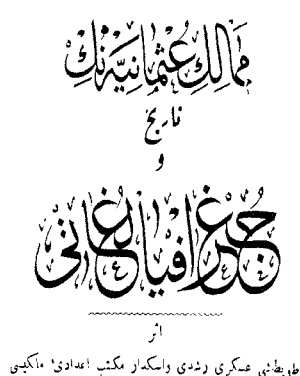 ممالك عثمانيه نك
تاريخ
و
جغرافيا لغاتى
اثر
طوپطاشى عسكرى رشدى واسكدار مكتب اعدادئ ملكيسى